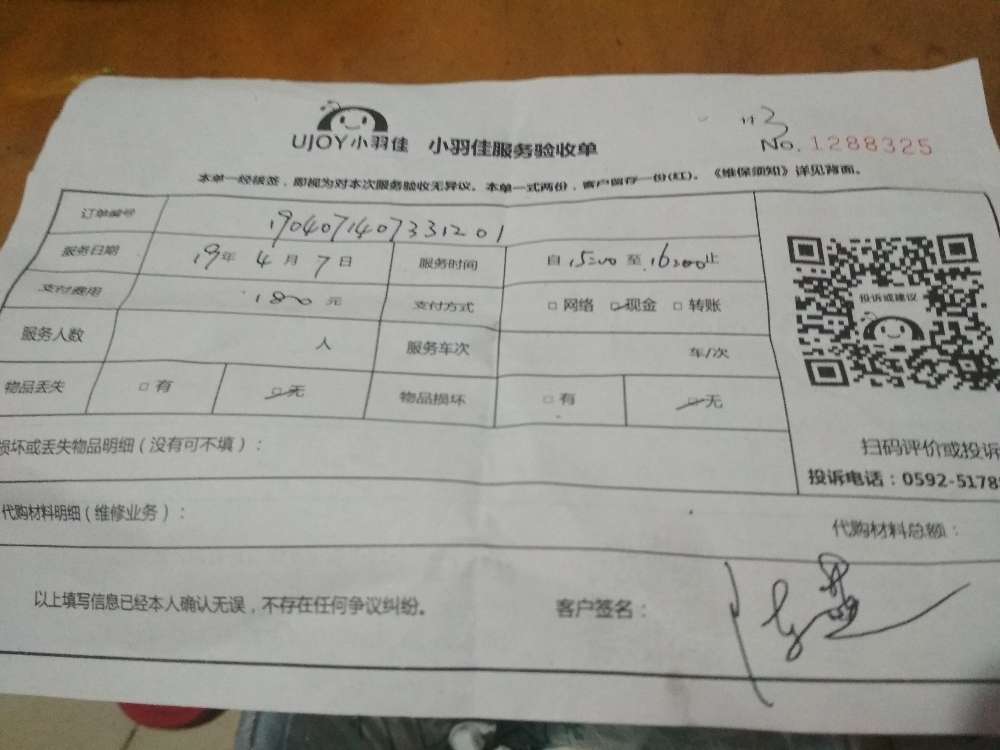 113
UJOY小羽佳 小羽佳服务验收单 No. 1288325
本单一经核签，即视为对本次服务验收无异议。本单一式两份，客户留存一份(红)。《维保须知》详见背面。
订单编号 19040714073312 01
服务日期 19年 4月 7日 服务时间 自 15:00 至 16:00止
支付费用 180 元 支付方式 □ 网络 □ 现金 □ 转账
投诉或建议
服务人数 人 服务车次 车/次
物品丢失 □ 有 □ 无 物品损坏 □ 有 □ 无
损坏或丢失物品明细（没有可不填）：
扫码评价或投诉
投诉电话：0592-5178
代购材料明细（维修业务）：
代购材料总额：
以上填写信息已经本人确认无误，不存在任何争议纠纷。 客户签名：